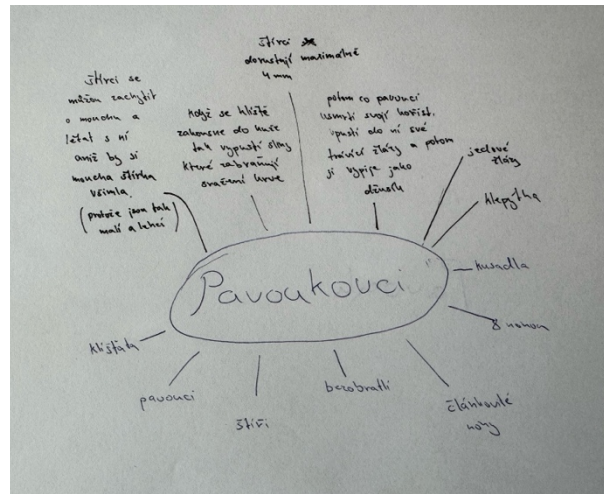 štírci se
můžou zachytit
o mouchu a
létat s ní
aniž by si
moucha štírka
všimla.
(protože jsou tak
malí a lehcí)
Když se klíště
zakousne do kůže
tak vypustí sliny
které zabraňují
sražení krve
štírci
dorustají maximálně
4 mm
potom co pavouci
usmrtí svojí kořist.
vpustí do ní své
trávící žlázy a potom
ji vypije jako
džusík
jedové
žlázy
klepýtka
kusadla
8 nohou
článkovité
nohy
bezobratlí
štíři
pavouci
klíšťata
Pavoukovci